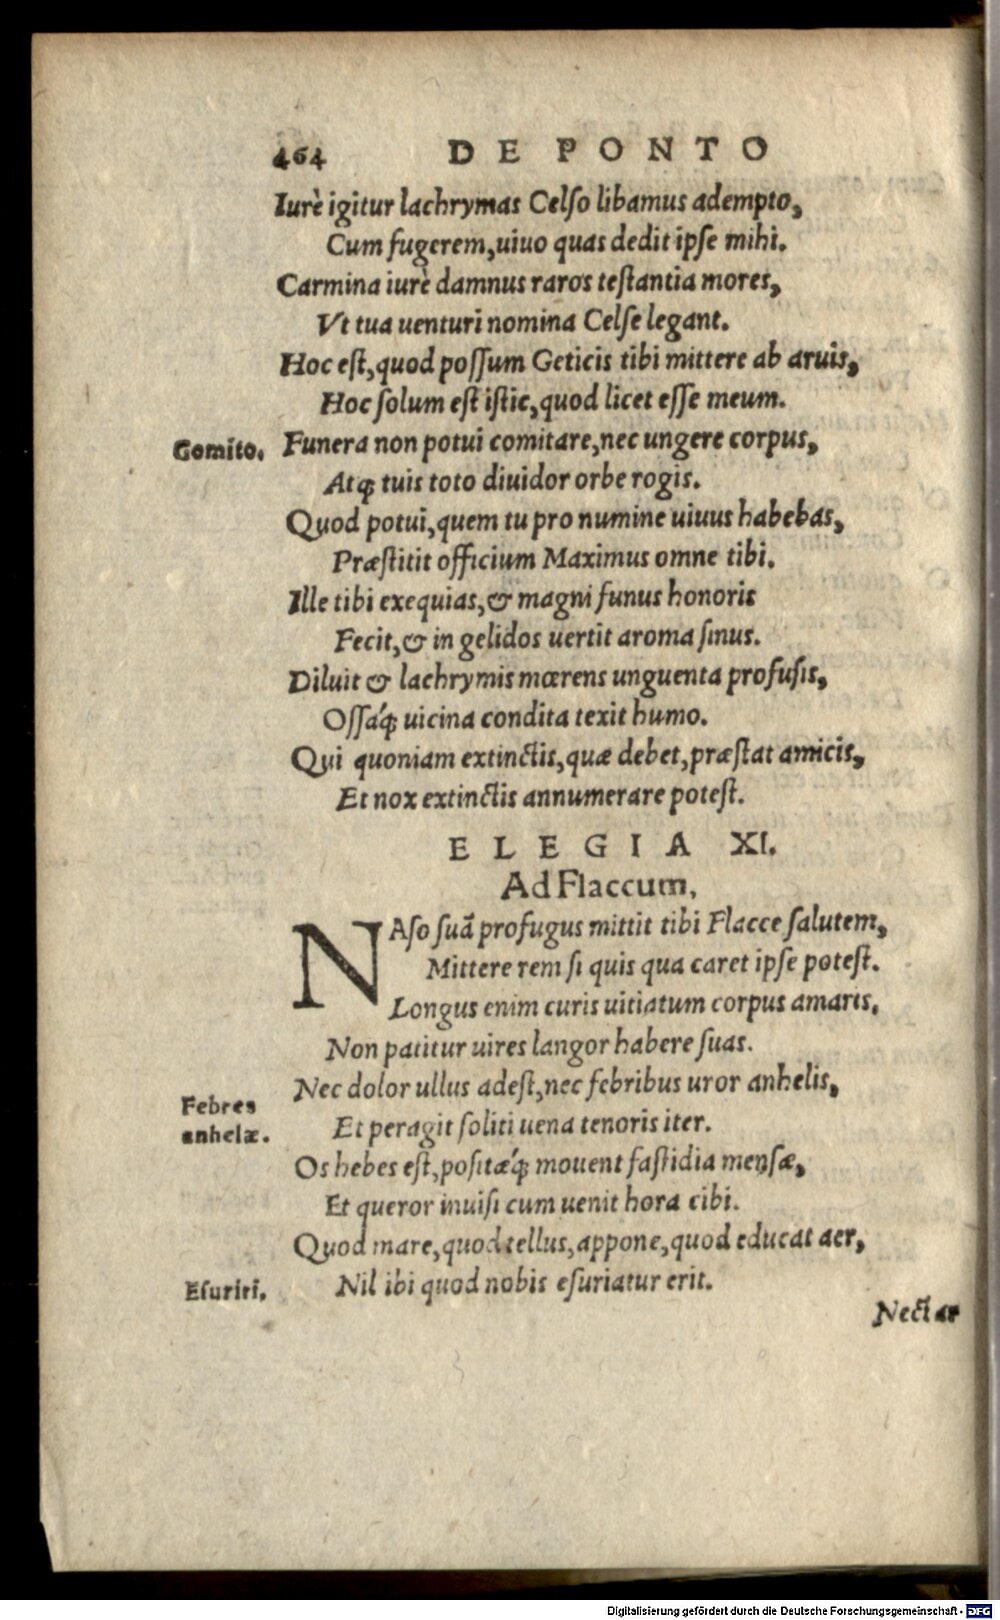 464 DE PONTO
Iurè igitur lachrymas Celſo libamus adempto,
Cum fugerem, uiuo quas dedit ipſe mihi.
Carmina iurè damnus raros teſtantia mores,
Vt tua uenturi nomina Celſe legant.
Hoc eſt, quod poſſum Geticis tibi mittere ab aruis,
Hoc ſolum eſt iſtic, quod licet eſſe meum.
Gomito. Funera non potui comitare, nec ungere corpus,
Atq́; tuis toto diuidor orbe rogis.
Quod potui, quem tu pro numine uiuus habebas,
Præſtitit officium Maximus omne tibi.
Ille tibi exequias, & magni funus honoris
Fecit, & in gelidos uertit aroma ſinus.
Diluit & lachrymis mœrens unguenta profuſis,
Oſſaq́; uicina condita texit humo.
Qui quoniam extinctis, quæ debet, præſtat amicis,
Et nox extinctis annumerare poteſt.
ELEGIA XI.
Ad Flaccum,
NAſo ſuā profugus mittit tibi Flacce ſalutem,
Mittere rem ſi quis qua caret ipſe poteſt.
Longus enim curis uitiatum corpus amaris,
Non patitur uires langor habere ſuas.
Nec dolor ullus adeſt, nec febribus uror anhelis,
Febres
anhelæ.
Et peragit ſoliti uena tenoris iter.
Os hebes eſt, poſitæq́; mouent faſtidia menſæ,
Et queror inuiſi cum uenit hora cibi.
Quod mare, quod tellus, appone, quod educat aer,
Eſuriri. Nil ibi quod nobis eſuriatur erit.
Nectar
Digitalisierung gefördert durch die Deutsche Forschungsgemeinschaft - DFG